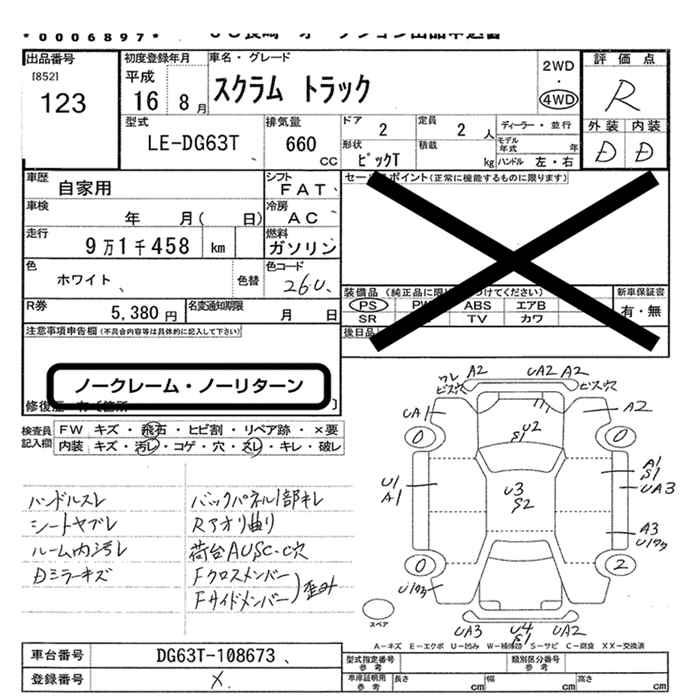 *0006897*
出品番号
[852]
123
初度登録年月
平成
16 8月
車名・グレード
スクラム トラック
2WD
・
4WD
評価点
R
外装 内装
D D
型式
LE-DG63T
排気量
660
CC
ドア
2
定員
2 人
ディーラー・並行
モデル年式 年
形状
ピックT
積載
kg
ハンドル 左・右
車歴
自家用
シフト
FAT
セールスポイント(正常に機能するものに限ります)
車検
年 月( 日)
冷房
AC
走行
9万1千458 km
燃料
ガソリン
色
ホワイト
色替
色コード
26U
装備品(純正品に限り つけてください)
PS PW ABS エアB
SR TV カワ
新車保証書
有・無
R券
5,380 円
名変通知期限
月 日
後日品
注意事項申告欄(不具合内容等は具体的に記入して下さい)
ノークレーム・ノーリターン
検査員
記入欄
FW キズ・飛石・ヒビ割・リペア跡・×要
内装 キズ・汚レ・コゲ・穴・スレ・キレ・破レ
ハンドルスレ
シートヤブレ
ルーム内汚レ
Dミラーキズ
バックパネル1部キレ
Rアオリ曲り
荷台AUSC・C穴
Fクロスメンバー
Fサイドメンバー
歪ミ
ワレ
ビス穴
A2 UA2 A2
ビス穴
UA1
A2
U2
S1
0 0
U1
A1
U3
S2
A1
S1
UA3
A3
U1ワク
0 2
U1ワク
スペア
UA3 U4 UA2
S1
A-キズ E-エクボ U-凹み W-補修跡 S-サビ C-腐食 XX-交換済
車台番号
DG63T-108673
登録番号
×
型式指定番号
参考
類別区分番号
参考
車庫証明用
参考
長さ cm
幅 cm
高さ cm